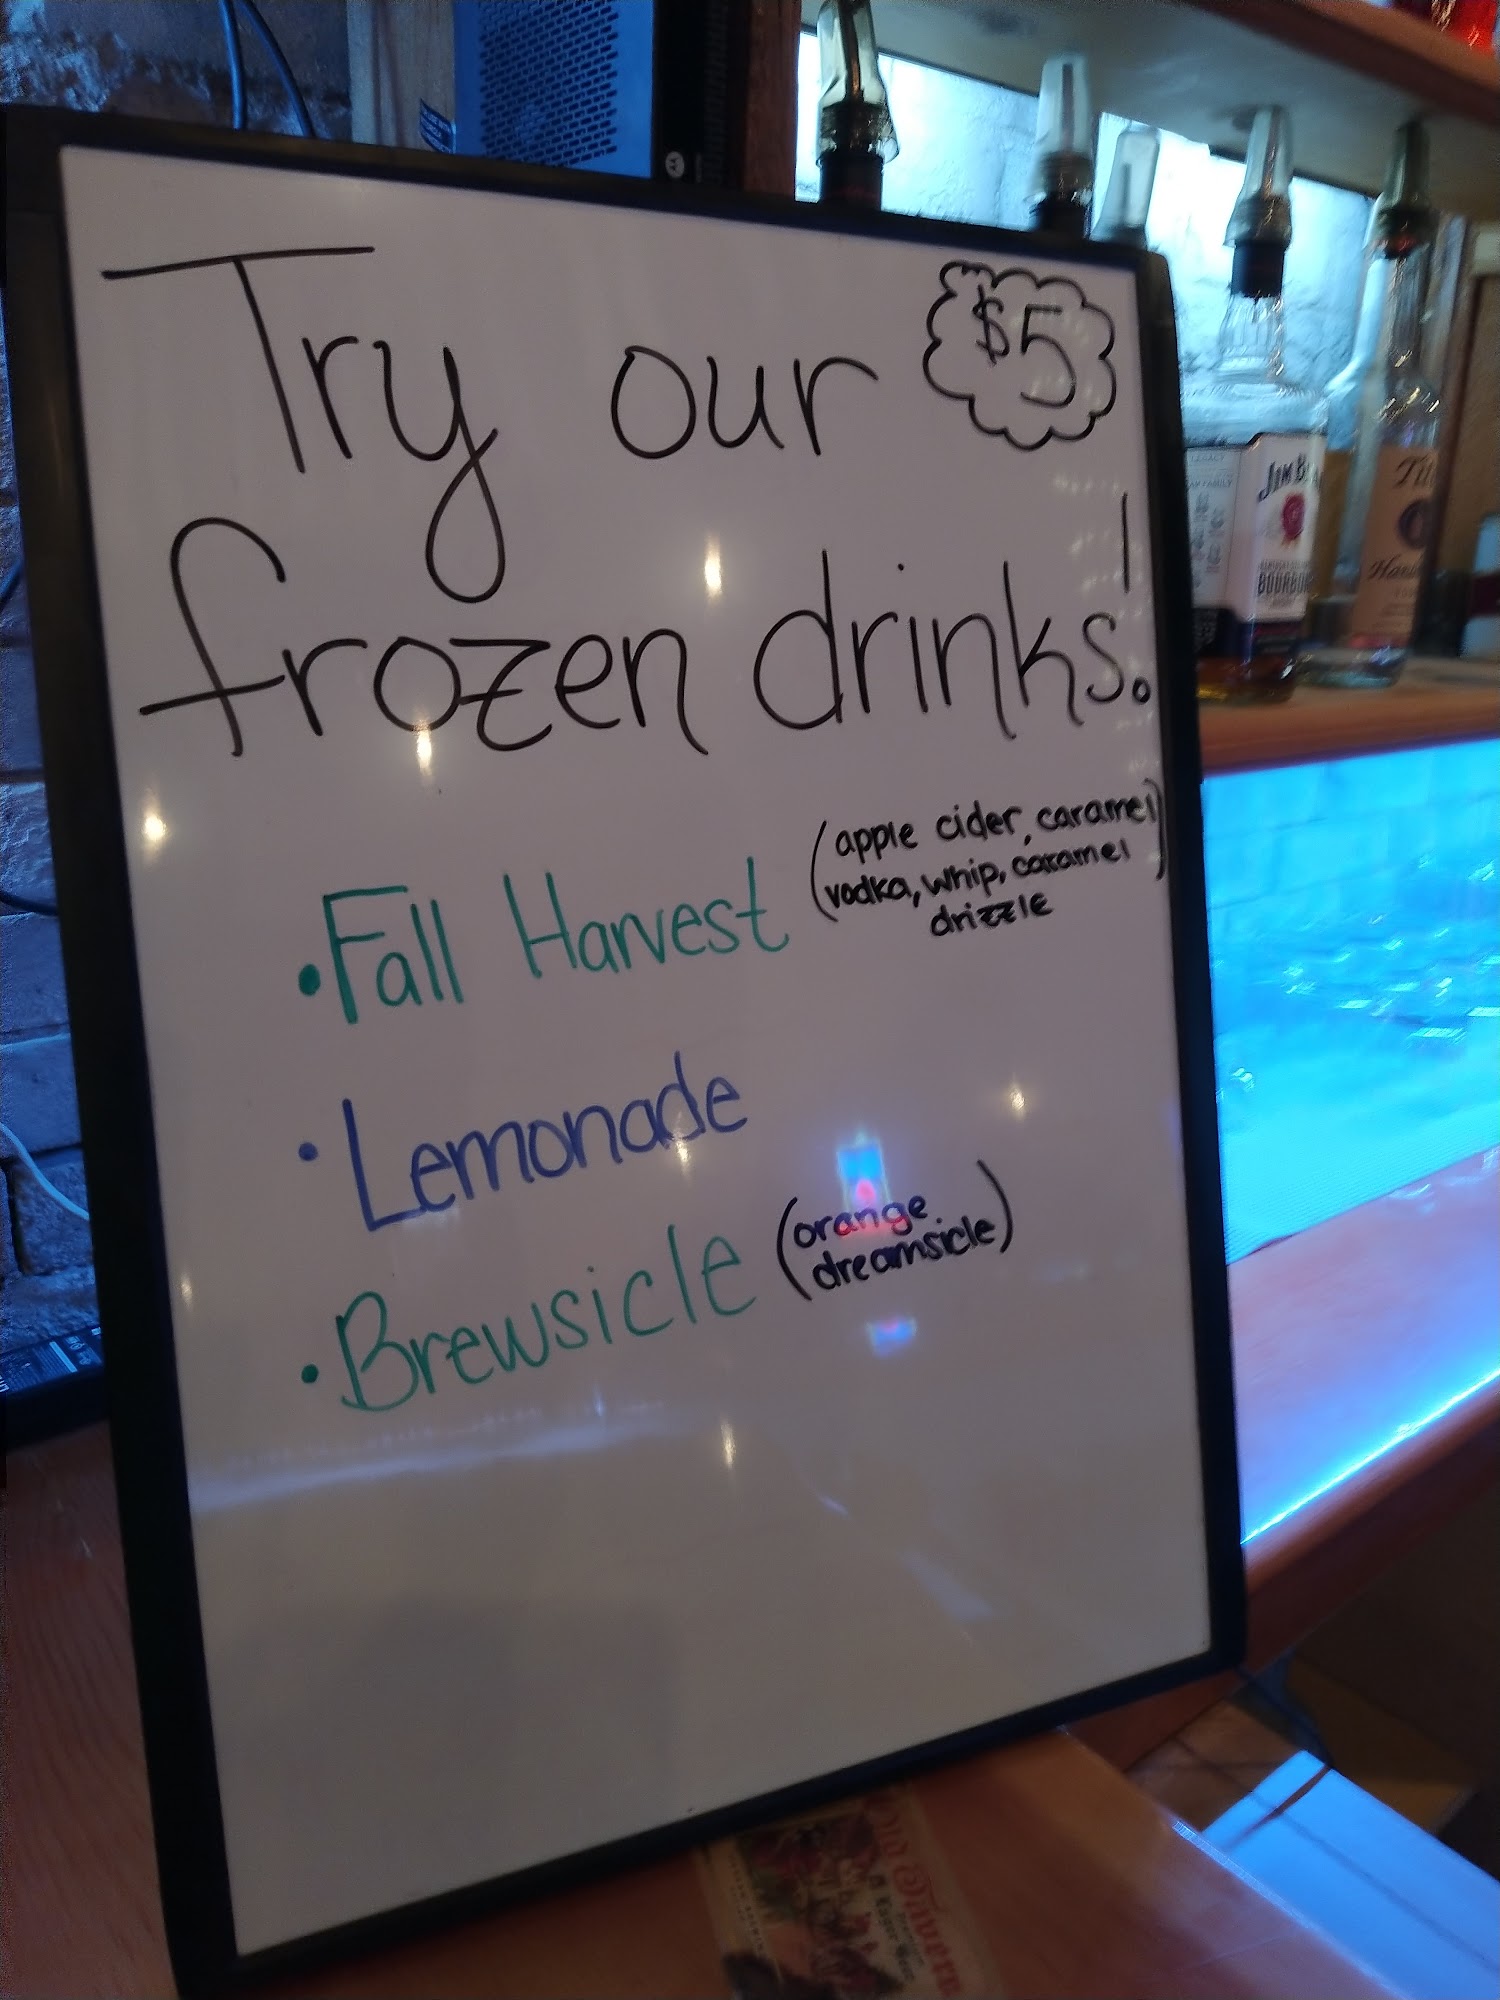 Try our $5
frozen drinks!
• Fall Harvest (apple cider, caramel
vodka, whip, caramel
drizzle)
• Lemonade
• Brewsicle (orange
dreamsicle)
JIM B
BOURBON
Tit
Hand
Old Tavern